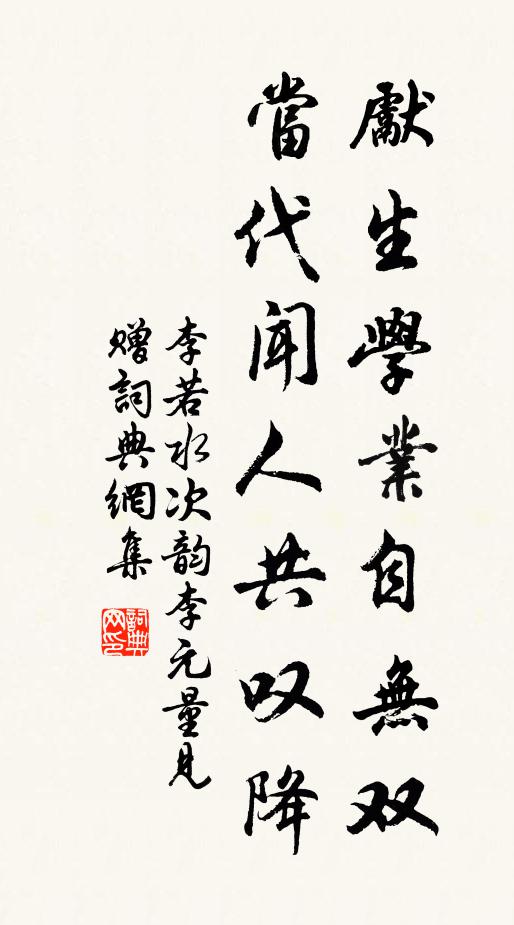 獻生學業自無双
當代聞人共叹降
李若水次韵李元量見
贈詞典網集
詞典
网印